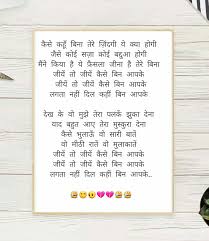 कैसे कहूँ बिना तेरे ज़िंदगी ये क्या होगी
जैसे कोई सज़ा कोई बद्दुआ होगी
मैंने किया है ये फ़ैसला जीना है तेरे बिना
जीयें तो जीयें कैसे बिन आपके
जीयें तो जीयें कैसे बिन आपके
लगता नहीं दिल कहीं बिन आपके
देख के वो मुझे तेरा पलकें झुका देना
याद बहुत आए तेरा मुस्कुरा देना
कैसे भुलाऊँ वो सारी बातें
वो मीठी रातें वो मुलाकातें
जीयें तो जीयें कैसे बिन आपके
जीयें तो जीयें कैसे बिन आपके
लगता नहीं दिल कहीं बिन आपके..